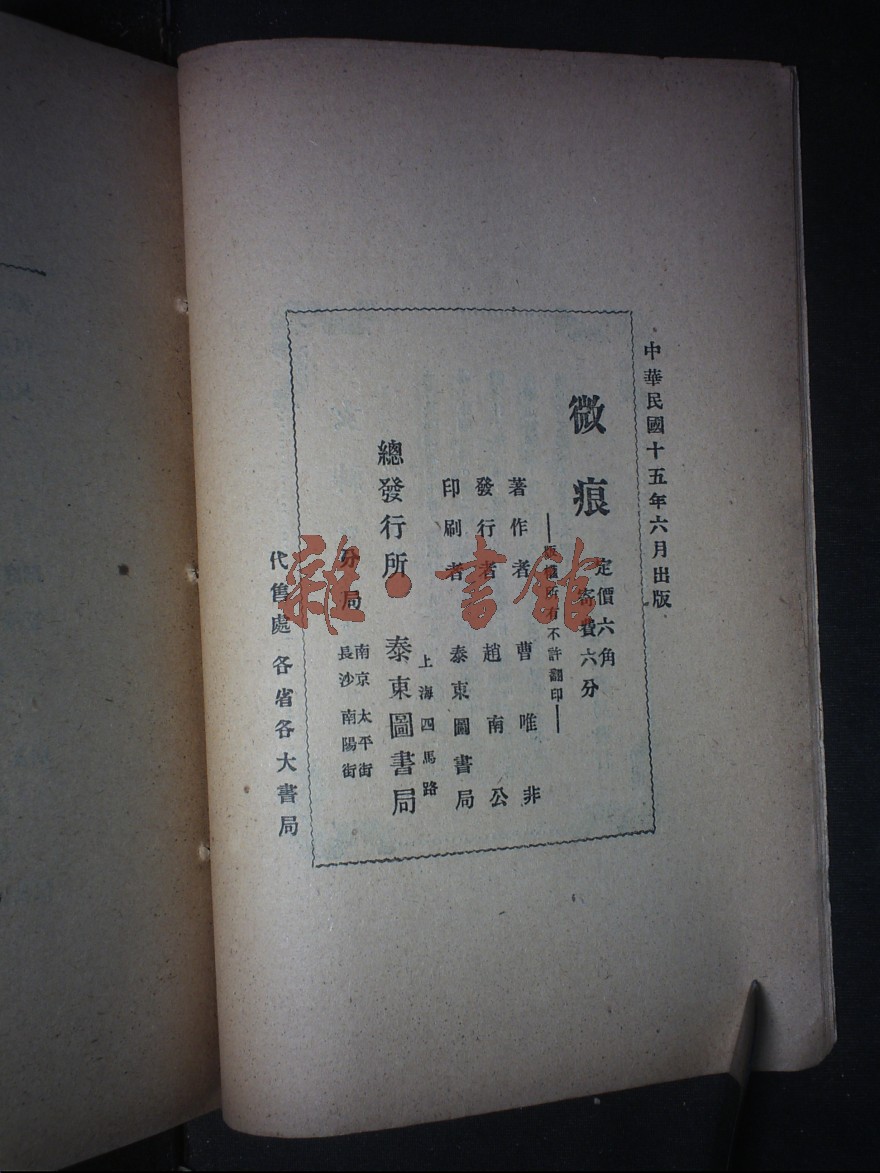 中華民國十五年六月出版
微痕
定價六角
寄費六分
版權所有不許翻印
著作者 曹唯非
發行者 趙南公
印刷者 泰東圖書局
上海四馬路
總發行所 泰東圖書局
分局
南京 太平街
長沙 南陽街
代售處 各省各大書局
雜·書館